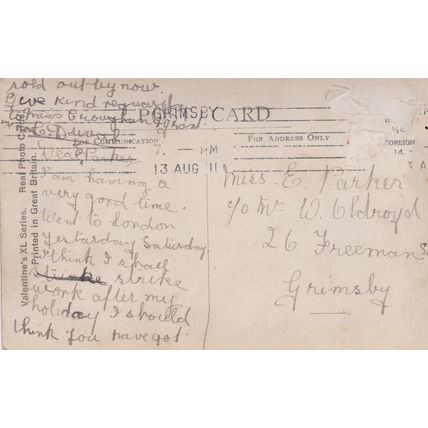 sold out by now.
Give kind regards
to Miss
GRIMSBY
POSTCARD
FOR COMMUNICATION
FOR ADDRESS ONLY
½d.
FOREIGN
1d.
7. PM
13 AUG 11
Valentine's XL Series. Real Photo
Printed in Great Britain.
Dear Parker
I am having a
very good time.
Went to London
yesterday Saturday
I think I shall
strike
work after my
holiday I should
think you have got
Miss E Parker
c/o Mr W. Oldroyd
26 Freeman
Grimsby